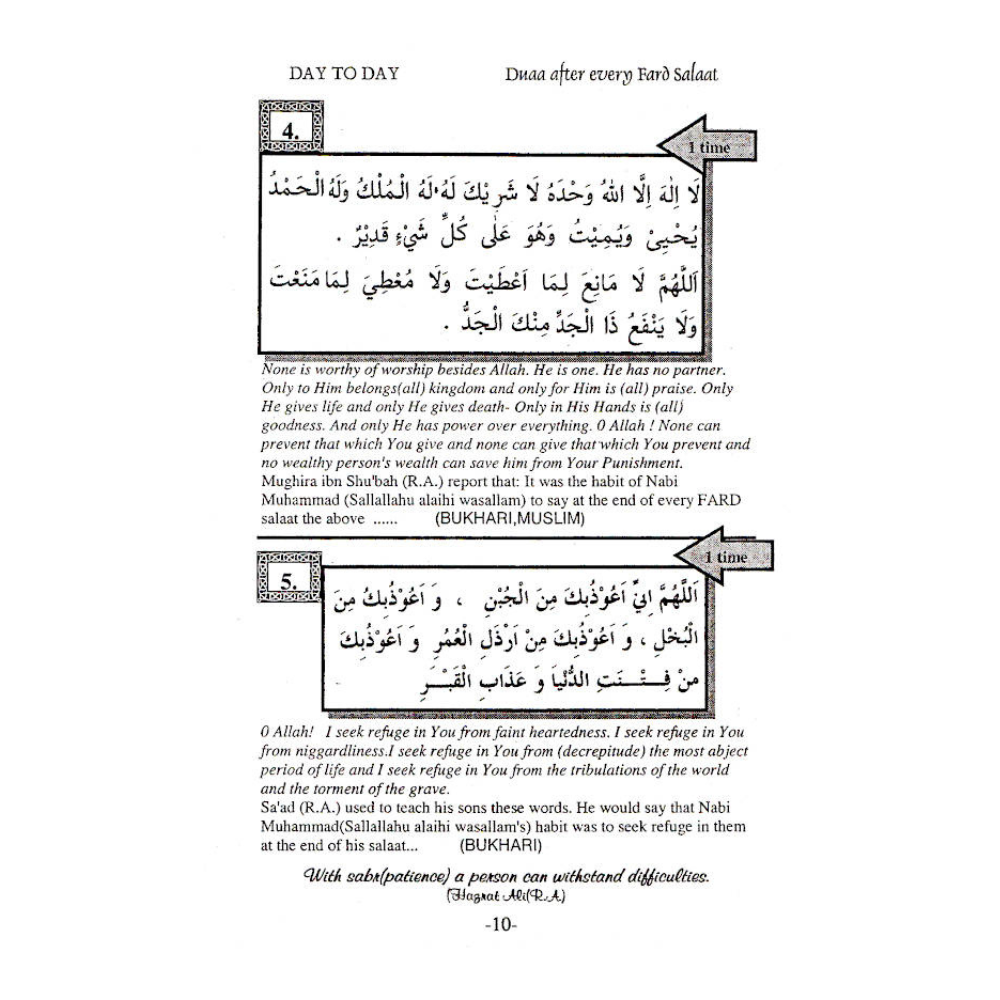 DAY TO DAY
Duaa after every Fard Salaat
4.
1 time
لَا اِلٰهَ اِلَّا اللهُ وَحْدَهُ لَا شَرِيْكَ لَهُ، لَهُ الْمُلْكُ وَلَهُ الْحَمْدُ
يُحْيِيْ وَيُمِيْتُ وَهُوَ عَلٰى كُلِّ شَيْءٍ قَدِيْرٌ .
اَللّٰهُمَّ لَا مَانِعَ لِمَا اَعْطَيْتَ وَلَا مُعْطِيَ لِمَا مَنَعْتَ
وَلَا يَنْفَعُ ذَا الْجَدِّ مِنْكَ الْجَدُّ .
None is worthy of worship besides Allah. He is one. He has no partner.
Only to Him belongs(all) kingdom and only for Him is (all) praise. Only
He gives life and only He gives death- Only in His Hands is (all)
goodness. And only He has power over everything. 0 Allah ! None can
prevent that which You give and none can give that which You prevent and
no wealthy person's wealth can save him from Your Punishment.
Mughira ibn Shu'bah (R.A.) report that: It was the habit of Nabi
Muhammad (Sallallahu alaihi wasallam) to say at the end of every FARD
salaat the above ...... (BUKHARI,MUSLIM)
1 time
5.
اَللّٰهُمَّ اِنِّيْ اَعُوْذُبِكَ مِنَ الْجُبْنِ ، وَ اَعُوْذُبِكُ مِنَ
الْبُخْلِ ، وَ اَعُوْذُبِكَ مِنْ اَرْذَلِ الْعُمُرِ وَ اَعُوْذُبِكَ
مِنْ فِـتْـنَـتِ الدُّنْيَا وَ عَذَابِ الْقَبْـرِ
0 Allah! I seek refuge in You from faint heartedness. I seek refuge in You
from niggardliness.I seek refuge in You from (decrepitude) the most abject
period of life and I seek refuge in You from the tribulations of the world
and the torment of the grave.
Sa'ad (R.A.) used to teach his sons these words. He would say that Nabi
Muhammad(Sallallahu alaihi wasallam's) habit was to seek refuge in them
at the end of his salaat... (BUKHARI)
With sabr(patience) a person can withstand difficulties.
(Hazrat Ali(R.A)
-10-